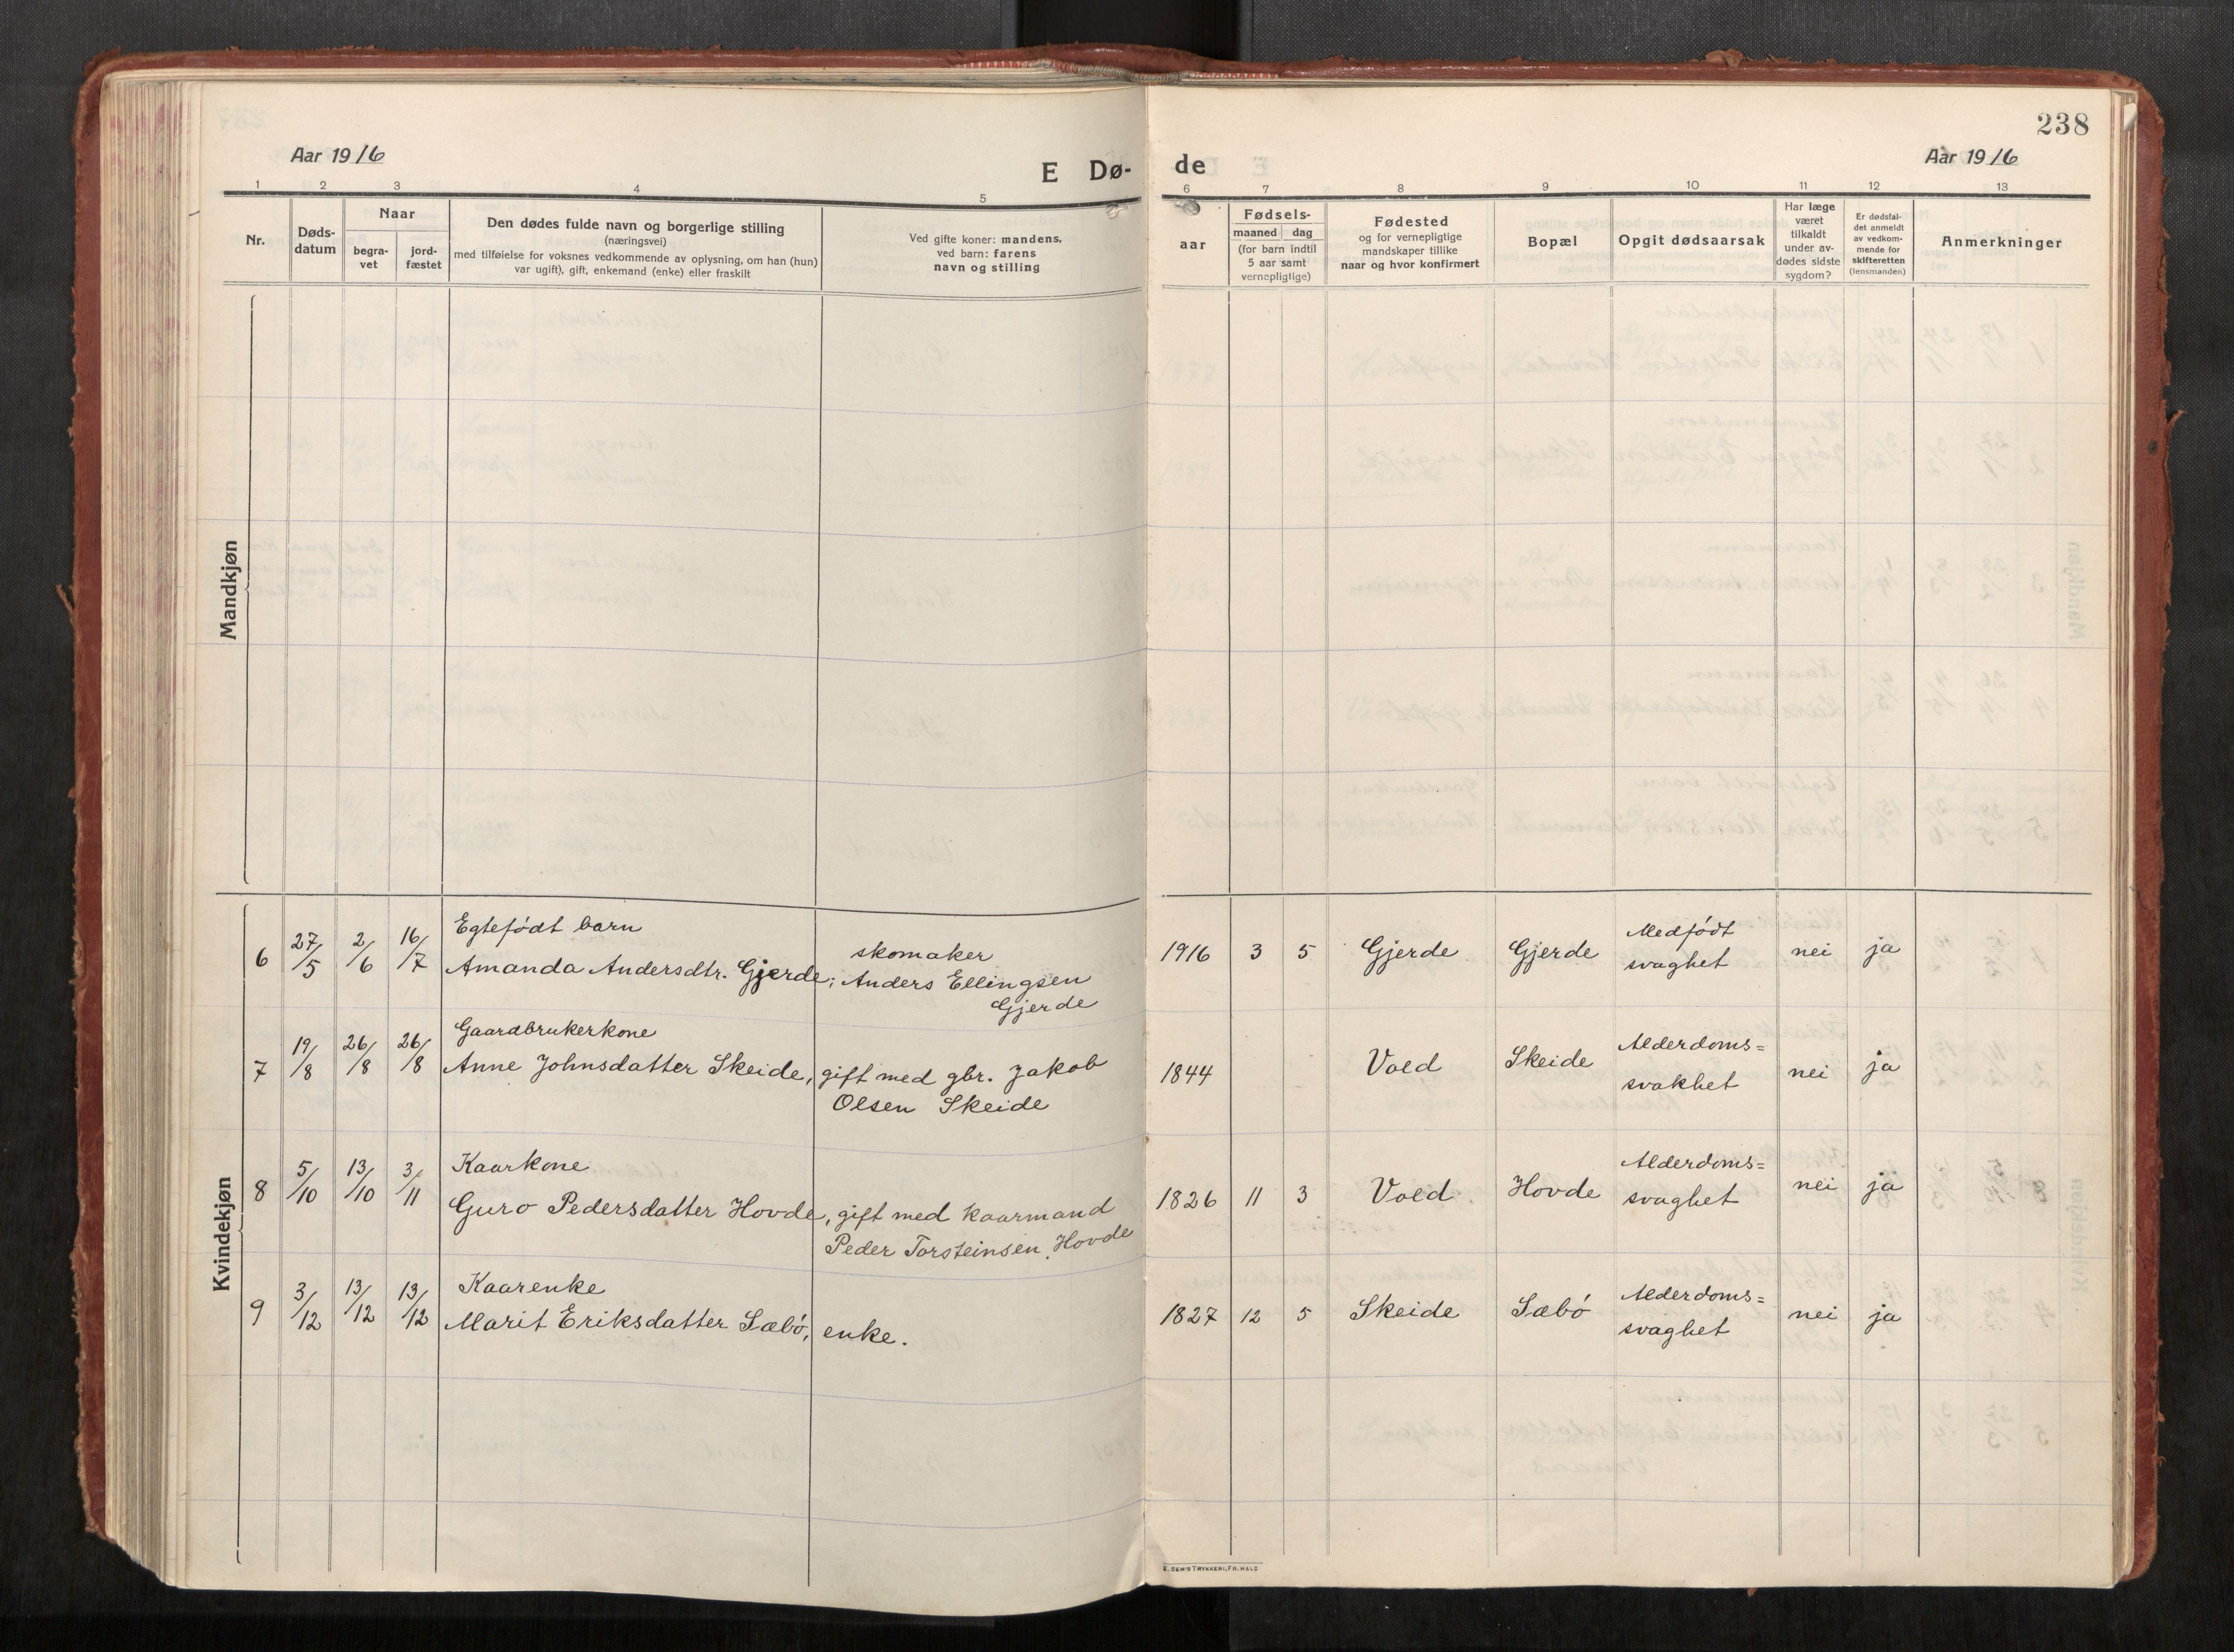 238
Aar 1916
E Dø-
de
Aar 1916
1 2 3 4 5 6 7 8 9 10 11 12 13
Nr.
Døds-
datum
Naar
begra-
vet
jord-
fæstet
Den dødes fulde navn og borgerlige stilling
(næringsvei)
med tilføielse for voksnes vedkommende av oplysning, om han (hun)
var ugift), gift, enkemand (enke) eller fraskilt
Ved gifte koner: mandens,
ved barn: farens
navn og stilling
aar
Fødsels-
maaned dag
(for barn indtil
5 aar samt
vernepligtige)
Fødested
og for vernepligtige
mandskaper tillike
naar og hvor konfirmert
Bopæl
Opgit dødsaarsak
Har læge
været
tilkaldt
under av-
dødes sidste
sygdom?
Er dødsfal-
det anmeldt
av vedkom-
mende for
skifteretten
(lensmanden)
Anmerkninger
Mandkjøn
Kvindekjøn
6 27/5 2/6 16/7 Egtefødt barn
Amanda Andersdtr. Gjerde;
skomaker
Anders Ellingsen
Gjerde
1916 3 5 Gjerde Gjerde Medfødt
svaghet
nei ja
7 19/8 26/8 26/8 Gaardbrukerkone
Anne Johnsdatter Skeide, gift med gbr. Jakob
Olsen Skeide
1844 Vold Skeide Alderdoms=
svakhet
nei ja
8 5/10 13/10 3/11 Kaarkone
Guro Pedersdatter Hovde, gift med kaarmand
Peder Torsteinsen Hovde
1826 11 3 Vold Hovde Alderdoms=
svaghet
nei ja
9 3/12 13/12 13/12 Kaarenke
Marit Eriksdatter Sæbø, enke.
1827 12 5 Skeide Sæbø Alderdoms=
svaghet
nei ja
E. SEM'S TRYKKERI, FR. HALD